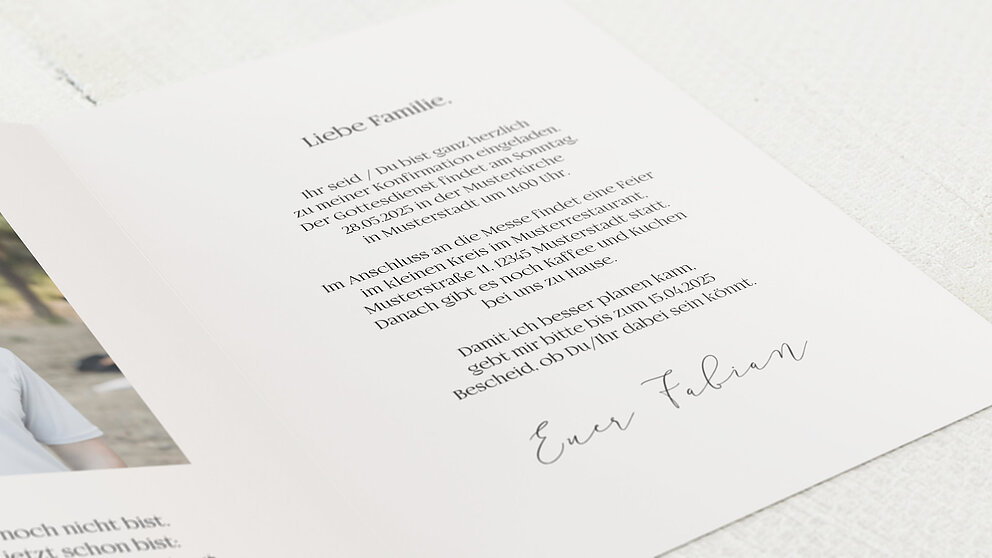 Liebe Familie,
Ihr seid / Du bist ganz herzlich
zu meiner Konfirmation eingeladen.
Der Gottesdienst findet am Sonntag,
28.05.2025 in der Musterkirche
in Musterstadt um 11:00 Uhr.
Im Anschluss an die Messe findet eine Feier
im kleinen Kreis im Musterrestaurant,
Musterstraße 11, 12345 Musterstadt statt.
Danach gibt es noch Kaffee und Kuchen
bei uns zu Hause.
Damit ich besser planen kann,
gebt mir bitte bis zum 15.04.2025
Bescheid, ob Du/Ihr dabei sein könnt.
Euer Fabian
noch nicht bist,
jetzt schon bist: